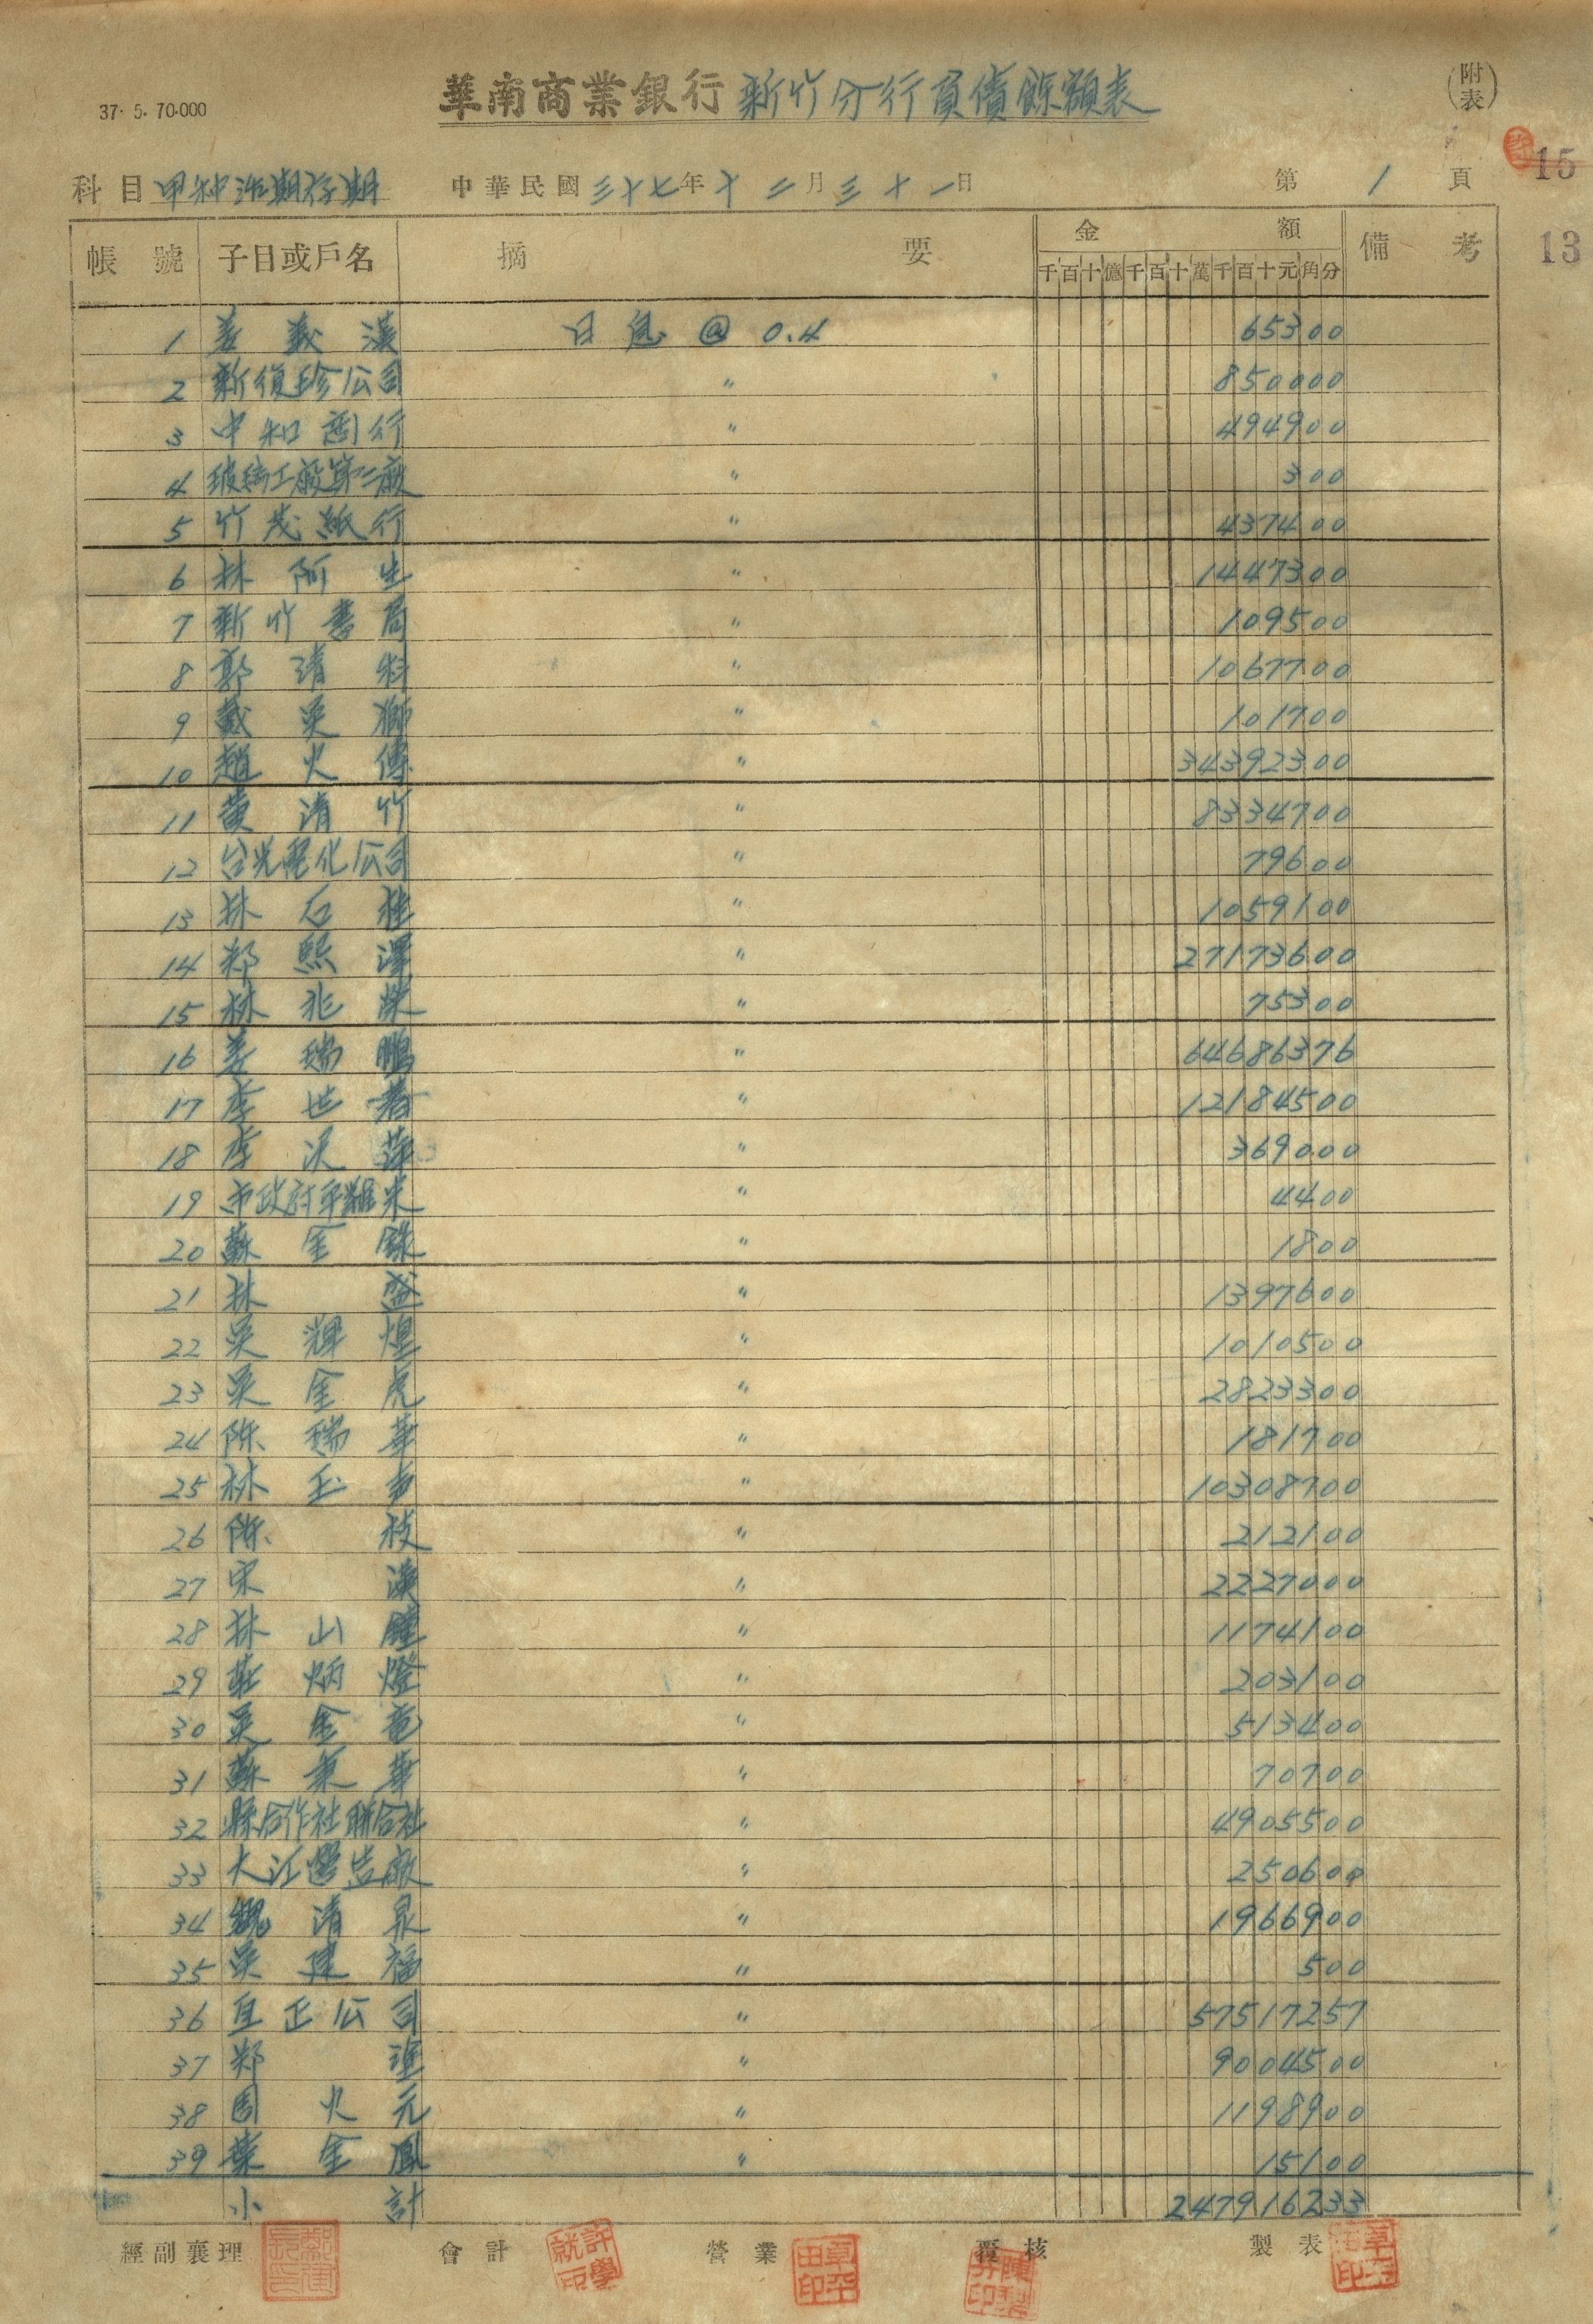 華南商業銀行新竹分行負債餘額表
(附表)
37. 5. 70.000
15
科目 甲種活期存期 中華民國三十七年十二月三十一日 第 1 頁
13
帳號 子目或戶名 摘要 金額 備考
千百十億千百十萬千百十元角分
1 姜義漢 日息 @ 0.4 65300
2 新復珍公司 〃 850000
3 中和商行 〃 494900
4 玻璃工廠第二廠 〃 300
5 竹茂紙行 〃 437400
6 林阿生 〃 1447300
7 新竹書局 〃 109500
8 郭清科 〃 1067700
9 戴吳獅 〃 101700
10 趙火傳 〃 34392300
11 黃清竹 〃 8334700
12 台光電化公司 〃 79600
13 林石桂 〃 1059100
14 鄭熙澤 〃 27173600
15 林兆榮 〃 75300
16 姜瑞鵬 〃 64686376
17 李世著 〃 12184500
18 李 萍 〃 369000
19 市政府平糶米 〃 4400
20 蘇金錄 〃 1800
21 林盛 〃 1397600
22 吳輝煌 〃 1010500
23 吳金虎 〃 2823300
24 陳瑞華 〃 181700
25 林玉 〃 10308700
26 陳枝 〃 212100
27 宋漢 〃 2227000
28 林山鐘 〃 1174100
29 莊炳燈 〃 203100
30 吳金竜 〃 513400
31 蘇秉華 〃 70700
32 縣合作社聯合社 〃 4905500
33 大江營造廠 〃 250600
34 魏清泉 〃 1966900
35 吳建福 〃 500
36 互正公司 〃 57517257
37 鄭 〃 9004500
38 周火元 〃 1198900
39 葉金鳳 〃 15100
小計 247916233
經副襄理 會計 營業 覆核 製表